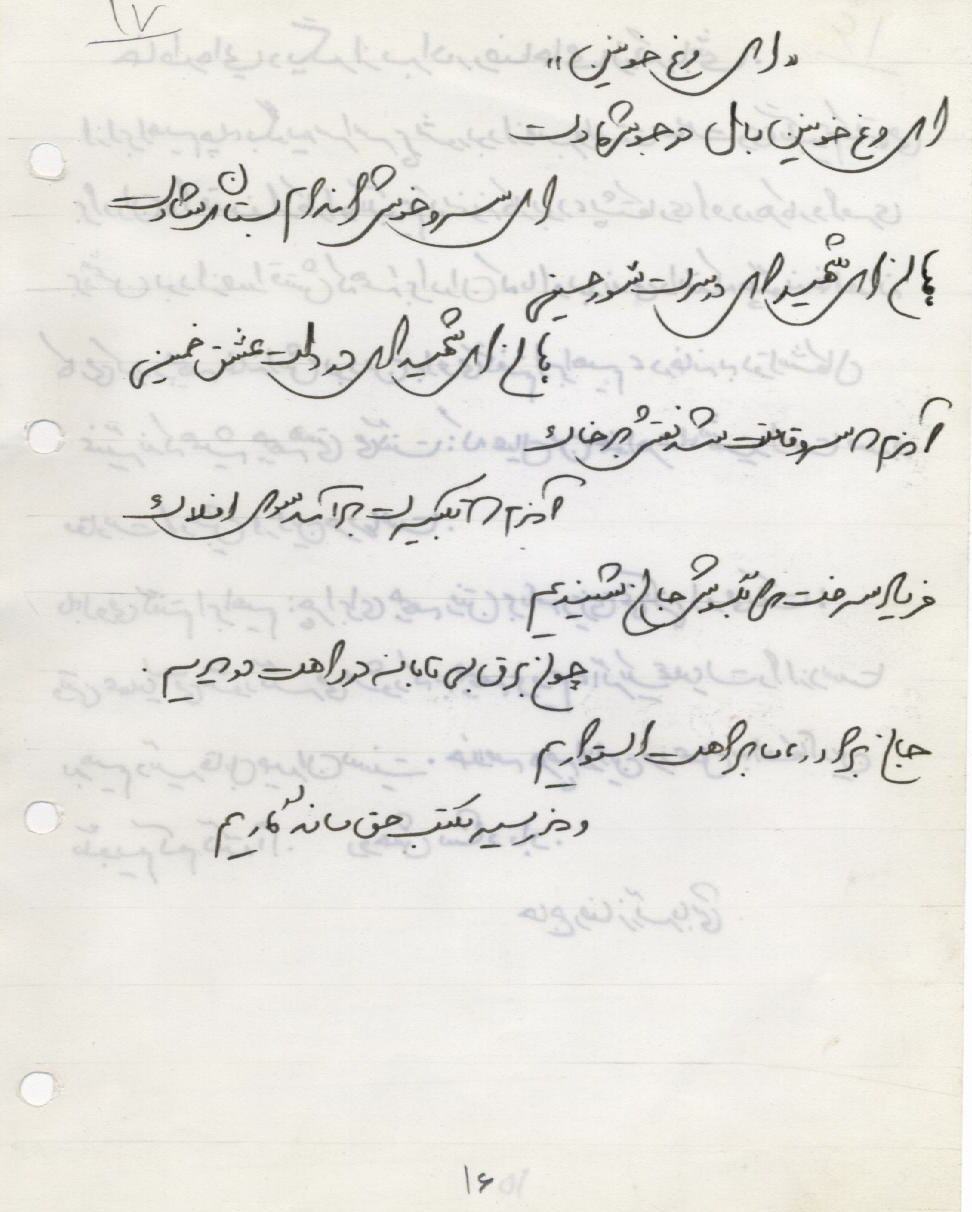 ۱۷
«ای مرغ خونین»
ای مرغ خونین بال در جوش شهادت
ای سرو خونین اندام بستان شهادت
هان ای شهید ای در سرت شور حسینی
هان ای شهید ای در دلت عشق خمینی
آندم که سرو قامتت شد نقش بر خاک
آندم که تکبیرت برآمد سوی افلاک
فریاد سرخت را بگوش جان شنیدیم
چون برق بی تابانه در راهت دویدیم.
جان برادر، ما براهت استواریم
در سیر مکتب حق ماندگاریم
۱۶